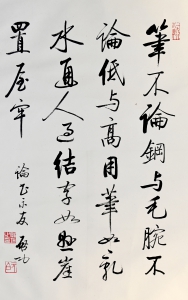 筆不論鋼与毛腕不
論低与高用筆如乱
水通人过結字如悬崖
置屋牢
論书示友 启功